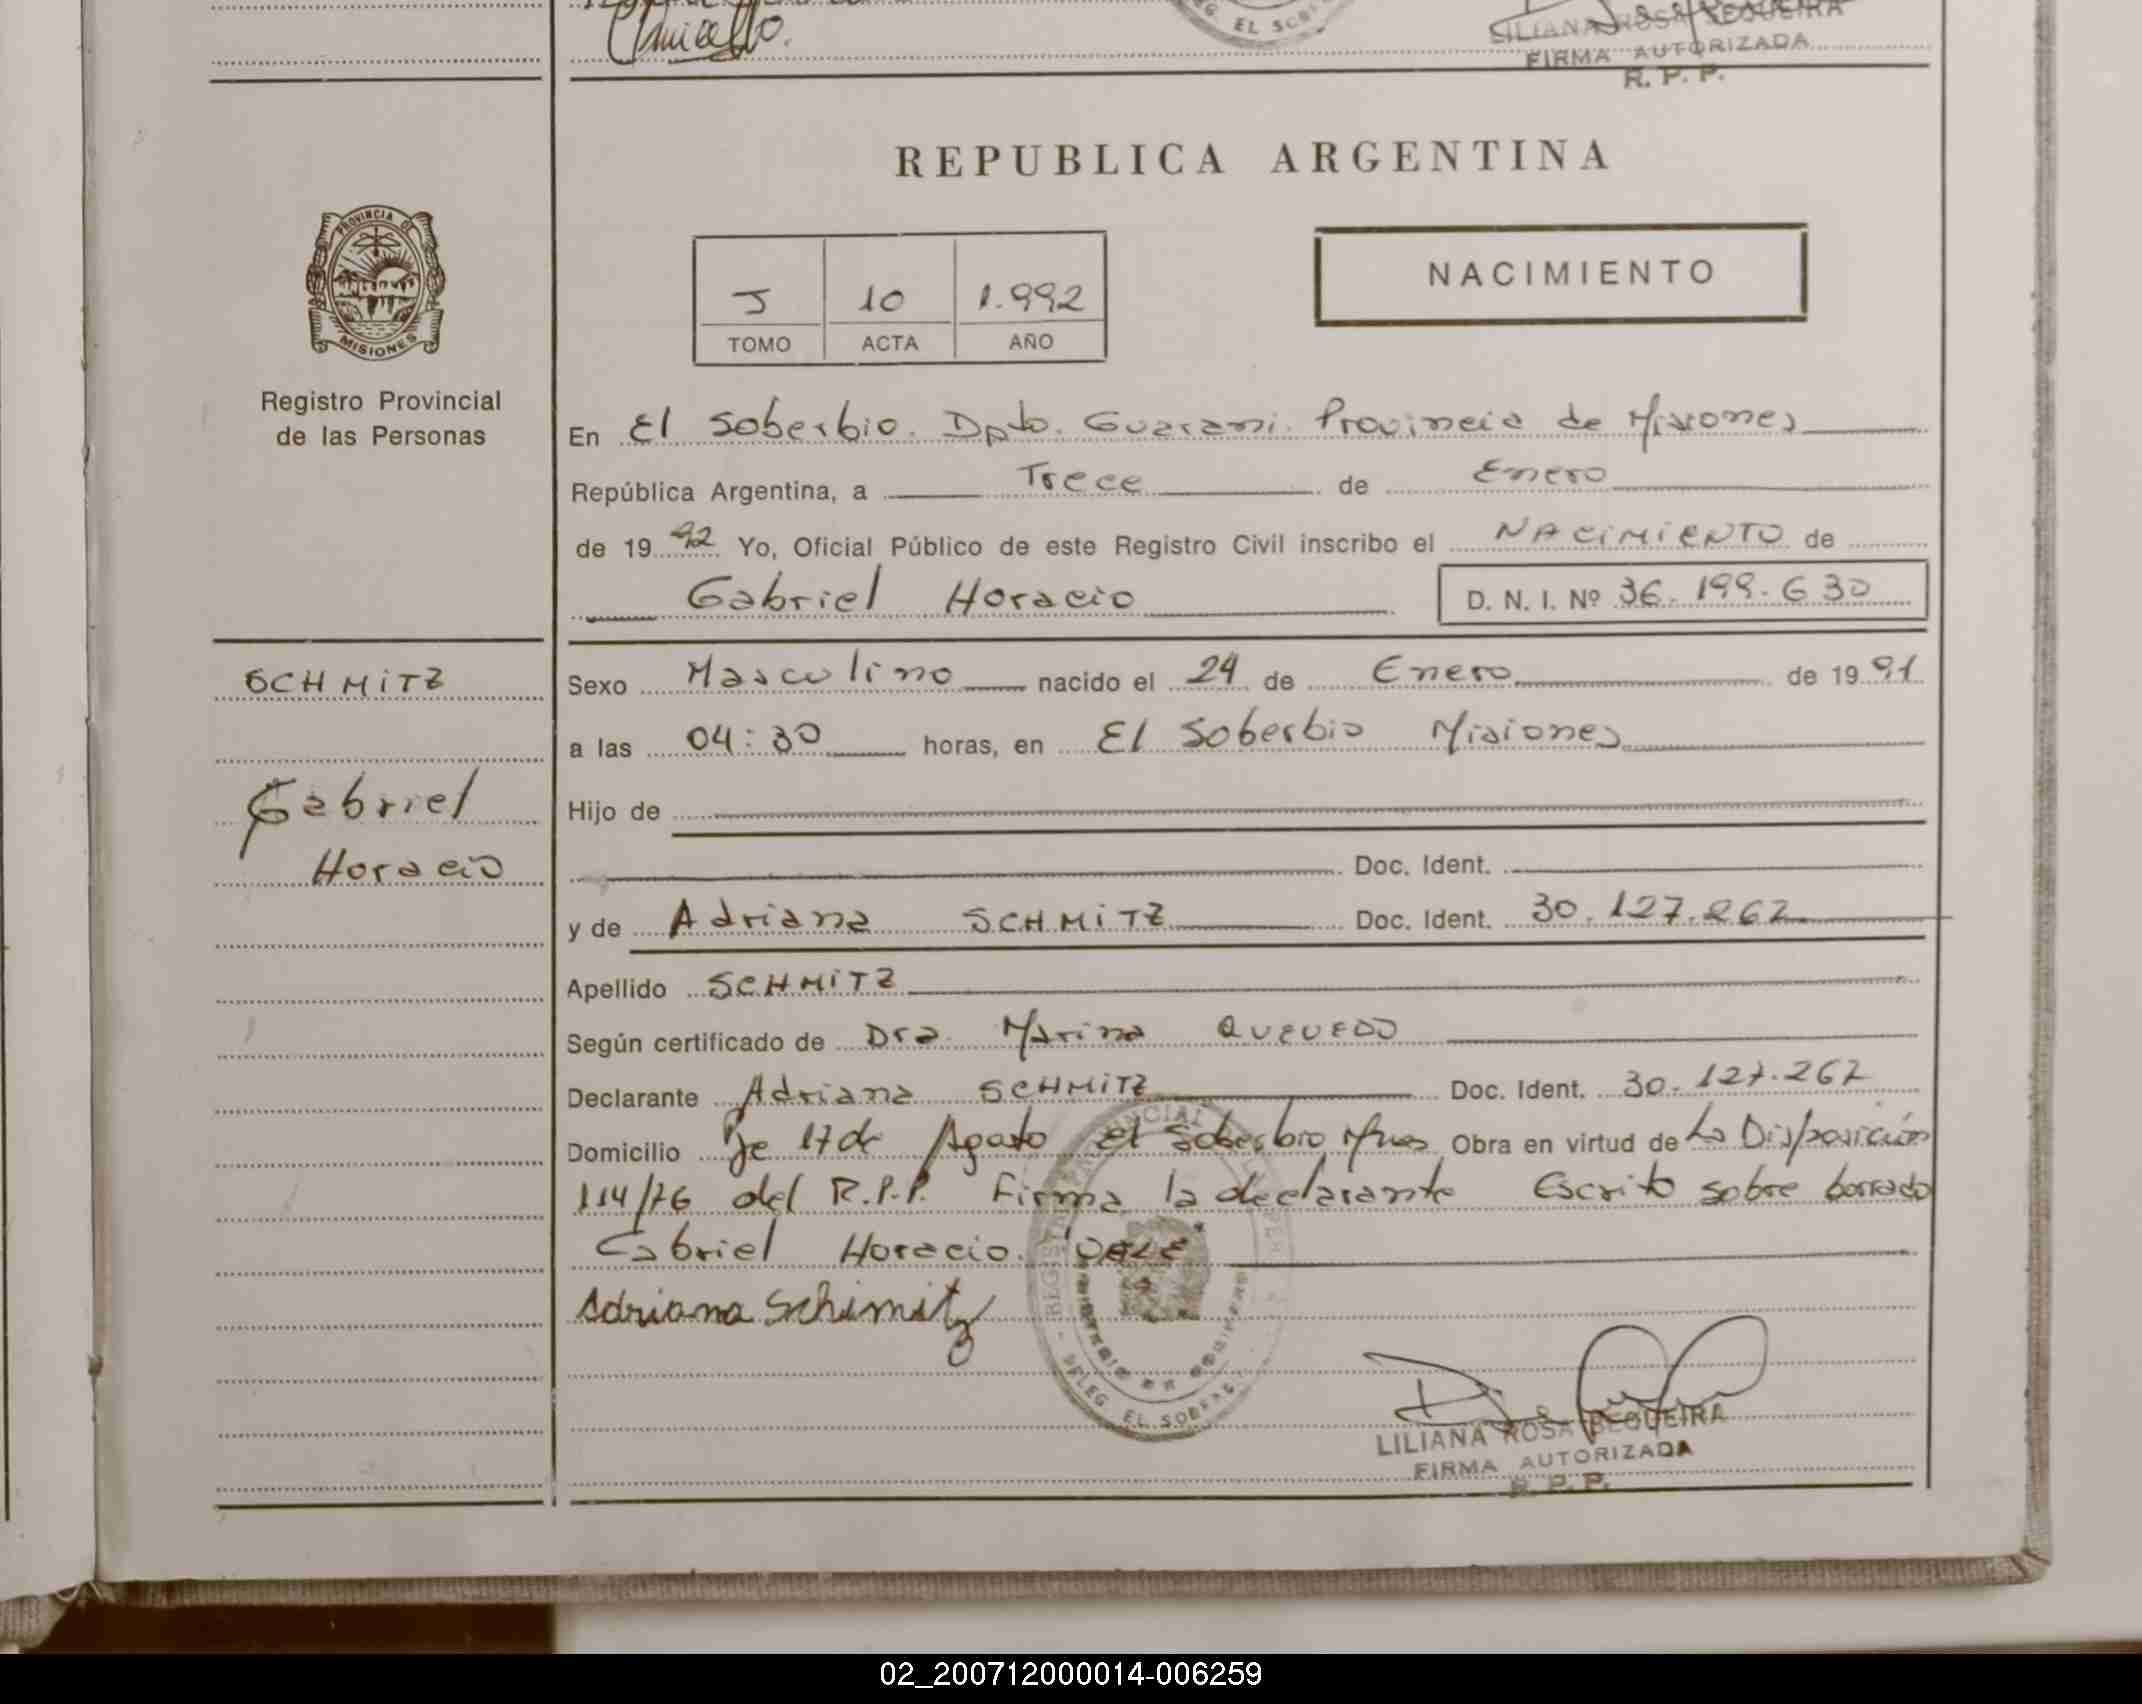 LILIANA ROSA SEQUEIRA
FIRMA AUTORIZADA
R. P. P.
REPUBLICA ARGENTINA
PROVINCIA DE
MISIONES
Registro Provincial
de las Personas
J 10 1.992
TOMO ACTA AÑO
NACIMIENTO
En El Soberbio. Dpto. Guarani. Provincia de Misiones
República Argentina, a Trece de Enero
de 1992 Yo, Oficial Público de este Registro Civil inscribo el NACIMIENTO de
Gabriel Horacio D. N. I. Nº 36.199.630
SCHMITZ
Gabriel
Horacio
Sexo Masculino nacido el 24 de Enero de 1991
a las 04:30 horas, en El Soberbio Misiones
Hijo de
Doc. Ident.
y de Adriana SCHMITZ Doc. Ident. 30.127.267
Apellido SCHMITZ
Según certificado de Dra. Marina QUEVEDO
Declarante Adriana SCHMITZ Doc. Ident. 30.127.267
Domicilio Je 17 de Agosto El Soberbio Mnes Obra en virtud de La Disposición
114/76 del R.P.P. Firma la declarante Escrito sobre borrado
Gabriel Horacio. VALE
Adriana Schimitz
DELEG. EL SOBERBIO
LILIANA ROSA SEQUEIRA
FIRMA AUTORIZADA
R. P. P.
02_200712000014-006259